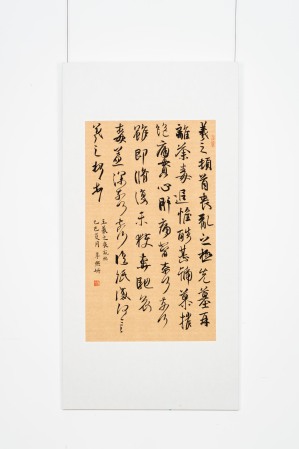 羲之頓首喪亂之極先墓再
離荼毒追惟酷甚號慕摧
絕痛貫心肝痛當奈何奈何
雖即脩復未獲奔馳哀
毒益深奈何奈何臨紙感何言
羲之頓首
王羲之喪亂帖
乙巳夏月